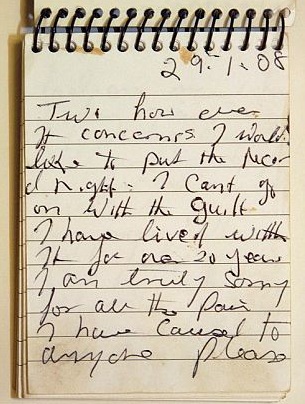 29.1.08
Two how ever
It concerns I would
like to put the recor
d right. I Cant go
on with the guilt
I have lived with
It for over 20 years
I am truly sorry
for all the pain
I have caused to
anyone please